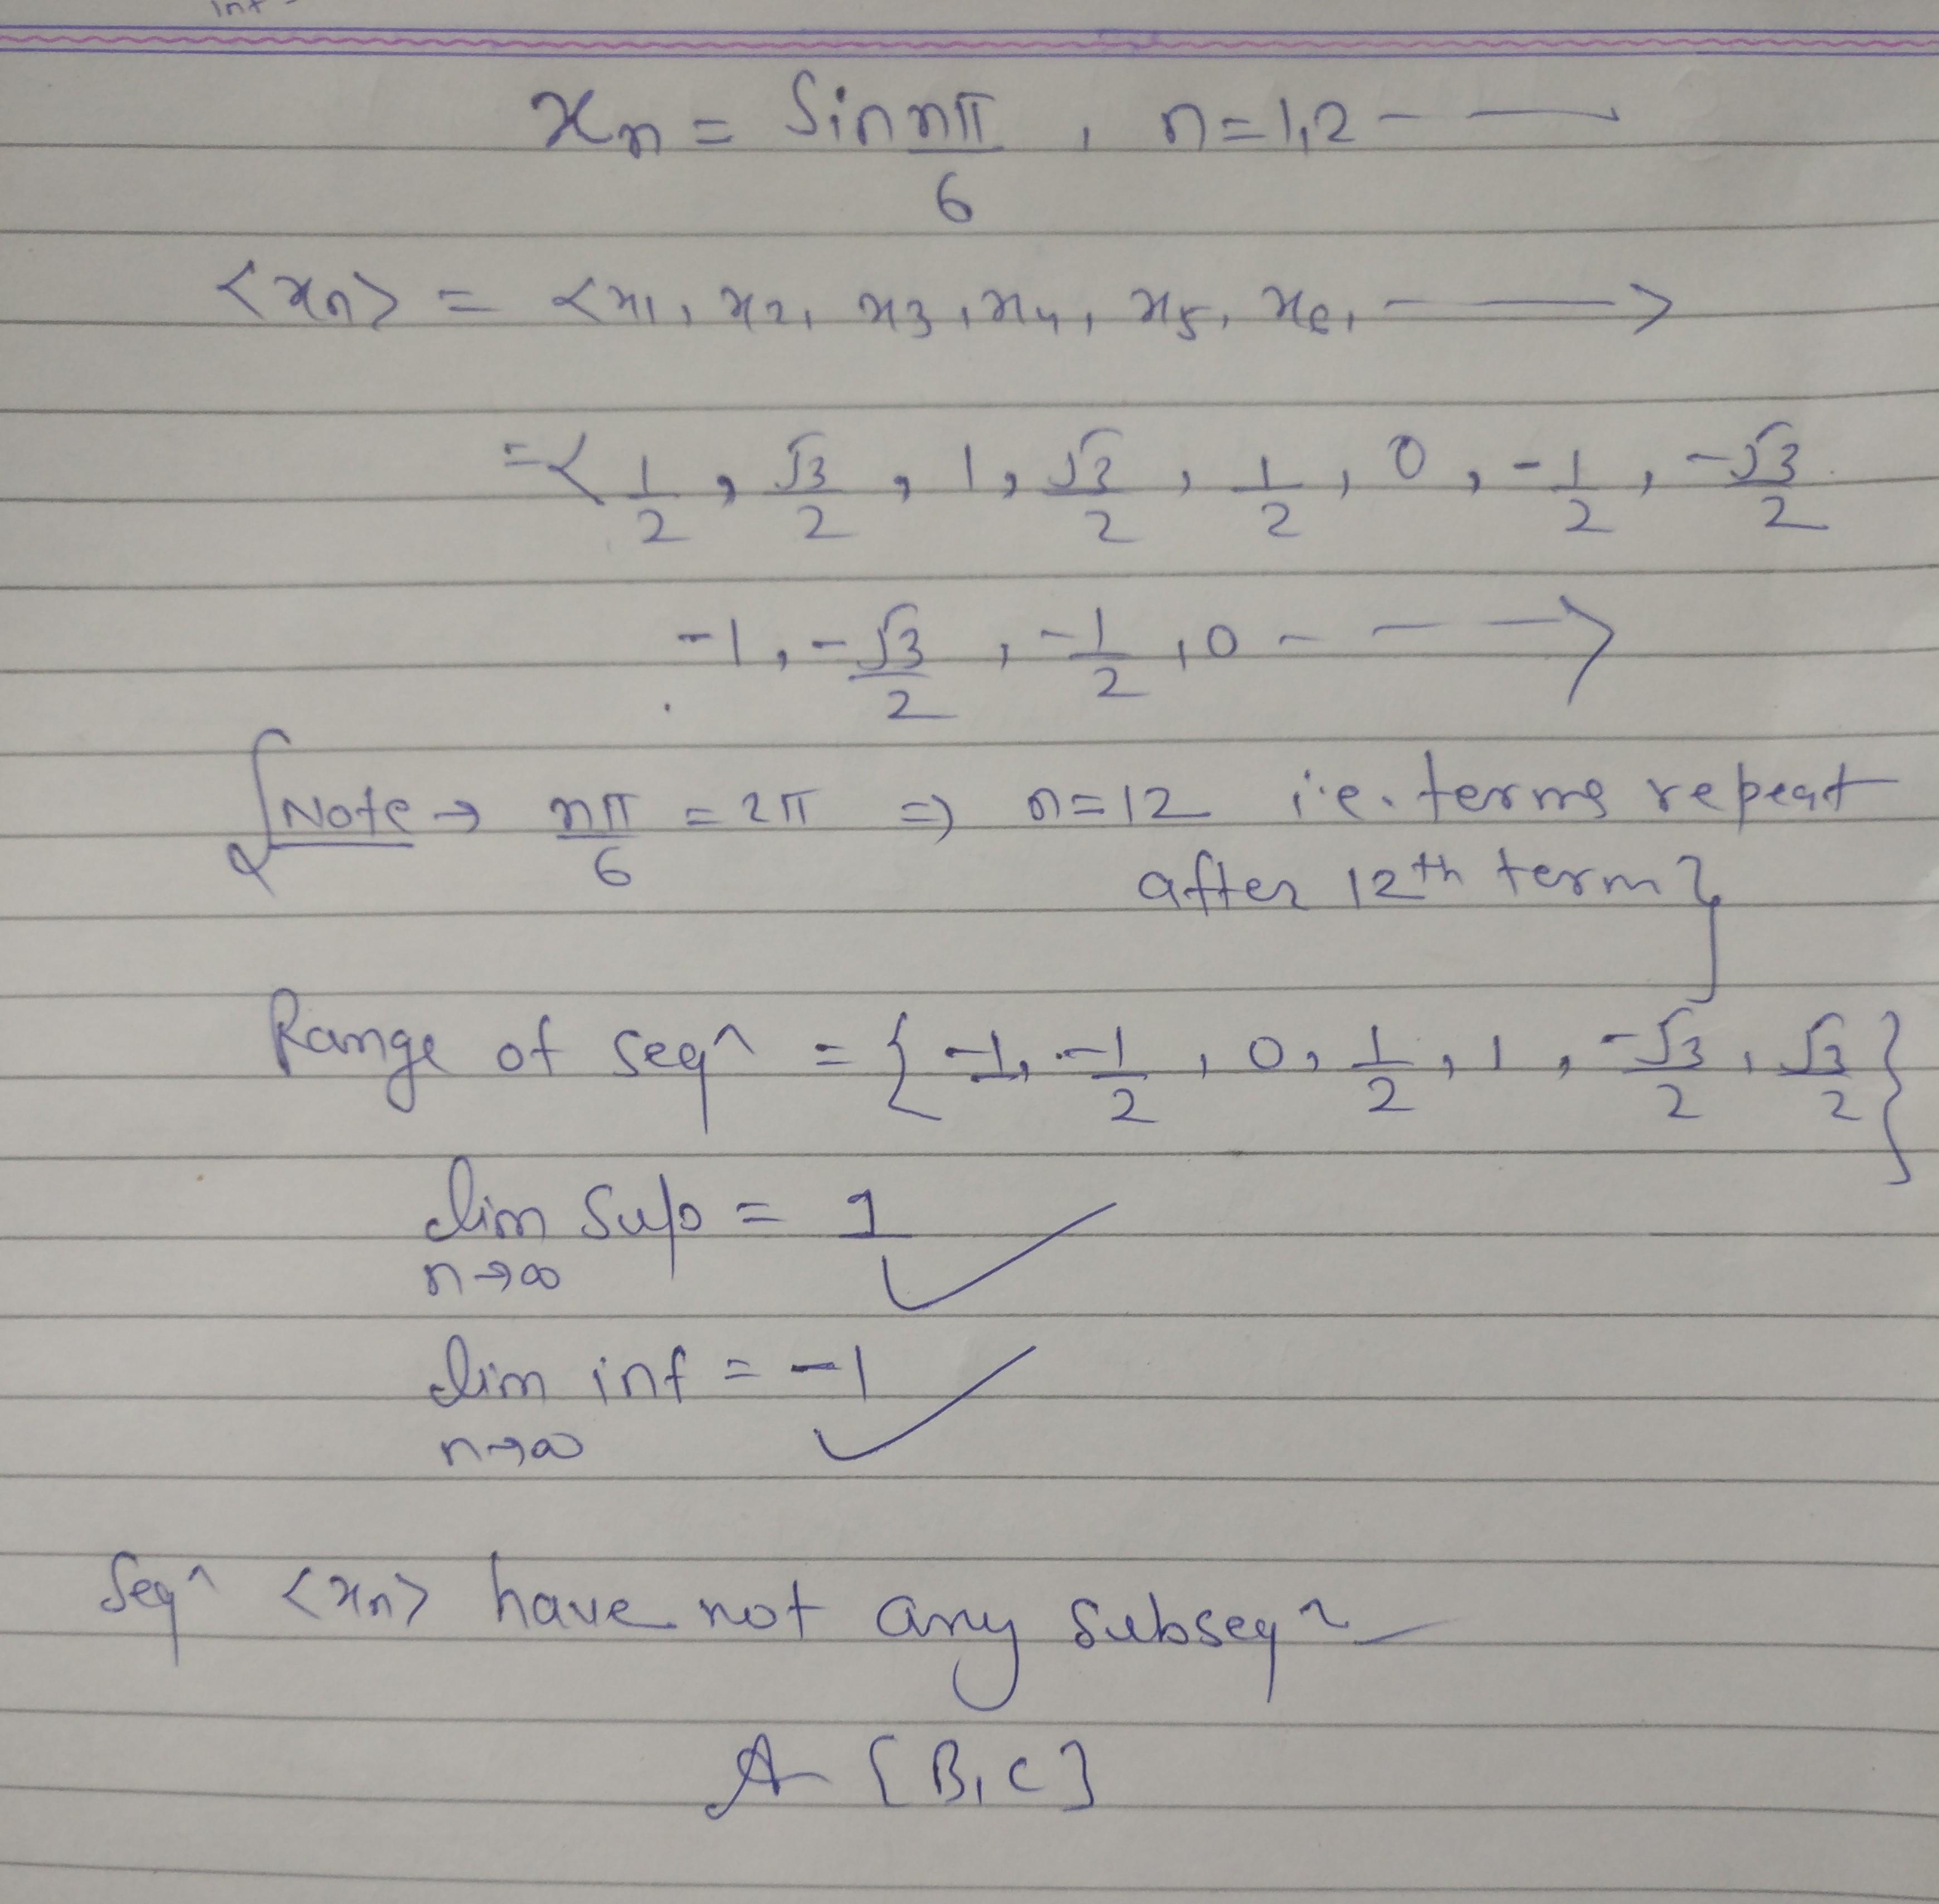 xₙ = Sin nπ/6 , n=1,2 - —
<xₙ> = <x₁, x₂, x₃, x₄, x₅, x₆, - —>
=< 1/2 , √3/2 , 1, √3/2 , 1/2 , 0 , -1/2 , -√3/2
-1, -√3/2 , -1/2 , 0 - - - >
{Note → nπ/6 = 2π ⇒ n=12 i.e. terms repeat
after 12th term}
Range of seqⁿ = { -1, -1/2 , 0, 1/2 , 1 , -√3/2 , √3/2 }
lim Sup = 1 ✓
n→∞
lim inf = -1 ✓
n→∞
Seqⁿ <xₙ> have not any subseqⁿ
A [B, C]